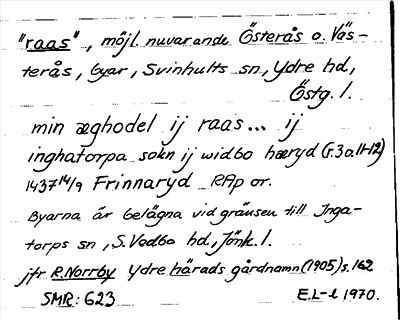 "raas", möjl. nuvarande Österås o. Väs-
terås, byar, Svinhults sn, Ydre hd,
Östg. l.
min æghodel ij raas... ij
inghatorpa sokn ij widbo hæryd (r. 3 o. 11-12)
1437 14/9 Frinnaryd RAp or.
Byarna är belägna vid gränsen till Inga-
torps sn, S. Vedbo hd, Jönk. l.
jfr R. Norrby Ydre härads gårdnamn (1905) s. 162
SMR: 623 E.L-l 1970.